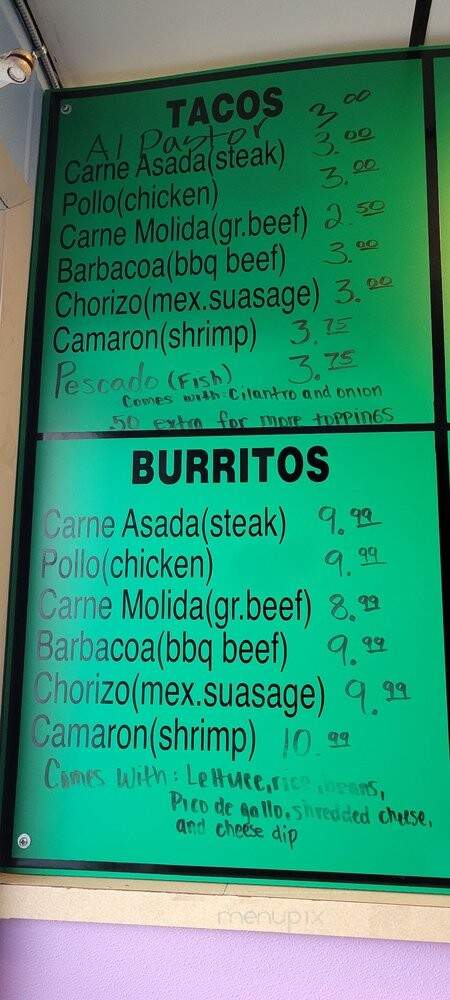 TACOS
Al Pastor 3.00
Carne Asada(steak) 3.00
Pollo(chicken) 3.00
Carne Molida(gr.beef) 2.50
Barbacoa(bbq beef) 3.00
Chorizo(mex.suasage) 3.00
Camaron(shrimp) 3.75
Pescado (Fish) 3.75
Comes with: Cilantro and onion
.50 extra for more toppings
BURRITOS
Carne Asada(steak) 9.99
Pollo(chicken) 9.99
Carne Molida(gr.beef) 8.99
Barbacoa(bbq beef) 9.99
Chorizo(mex.suasage) 9.99
Camaron(shrimp) 10.99
Comes With: Lettuce, rice, beans,
Pico de gallo, shredded cheese,
and cheese dip
menupix